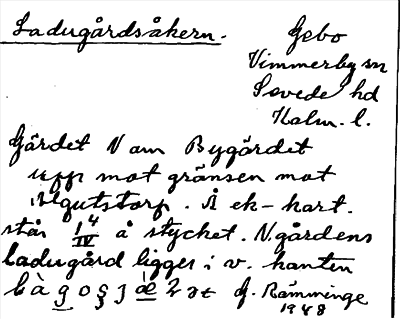 Ladugårdsåkern.
Gebo
Vimmerby sn
Sevede hd
Kalm. l.
Gärdet N om Bygärdet
upp mot gränsen mot
Algutstorp. Å ek-kart.
står 14/IV å stycket. N.gårdens
ladugård ligger i v. kanten
G. Rämminge
1948